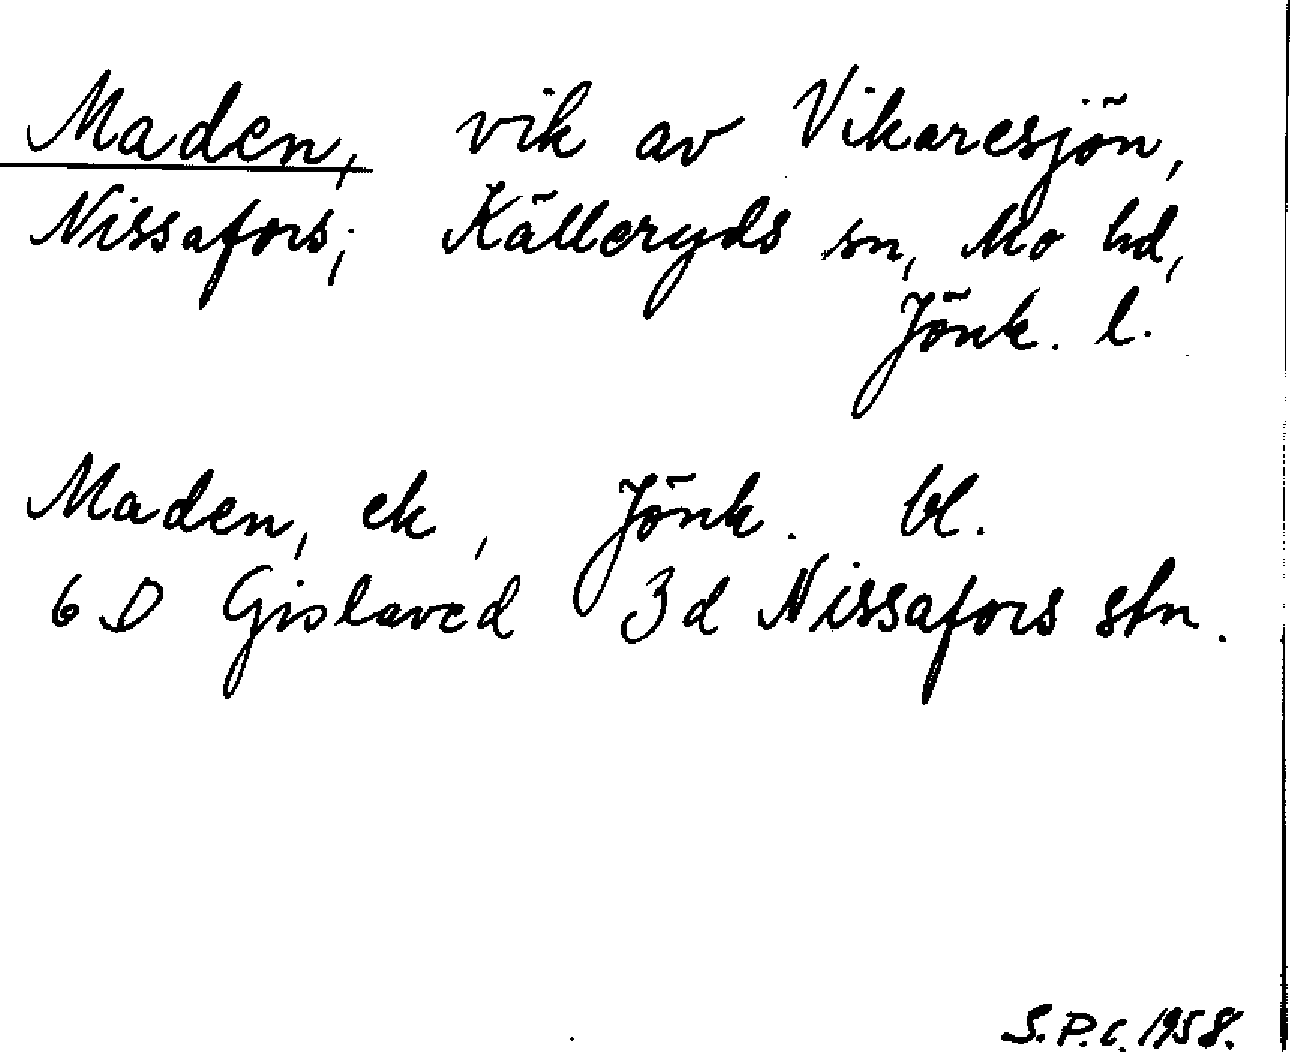 Maden, vik av Vikaresjön,
Nissafors; Källeryds sn, Mo hd,
Jönk. l.
Maden, ek, Jönk. bl.
6 D Gislaved 3d Nissafors stn.
S.P.C. 1958.